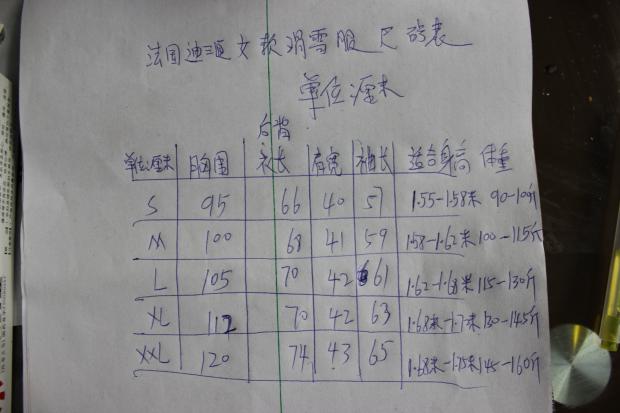 法国迪 女款滑雪服尺码表
单位:厘米
后背
单位:厘米 胸围 衣长 肩宽 袖长 适合身高 体重
S 95 66 40 57 1.55-1.58米 90-100斤
M 100 68 41 59 1.58-1.62米 100-115斤
L 105 70 42 61 1.62-1.68米 115-130斤
XL 112 70 42 63 1.68米-1.7米 130-145斤
XXL 120 74 43 65 1.68米-1.75米 145-160斤